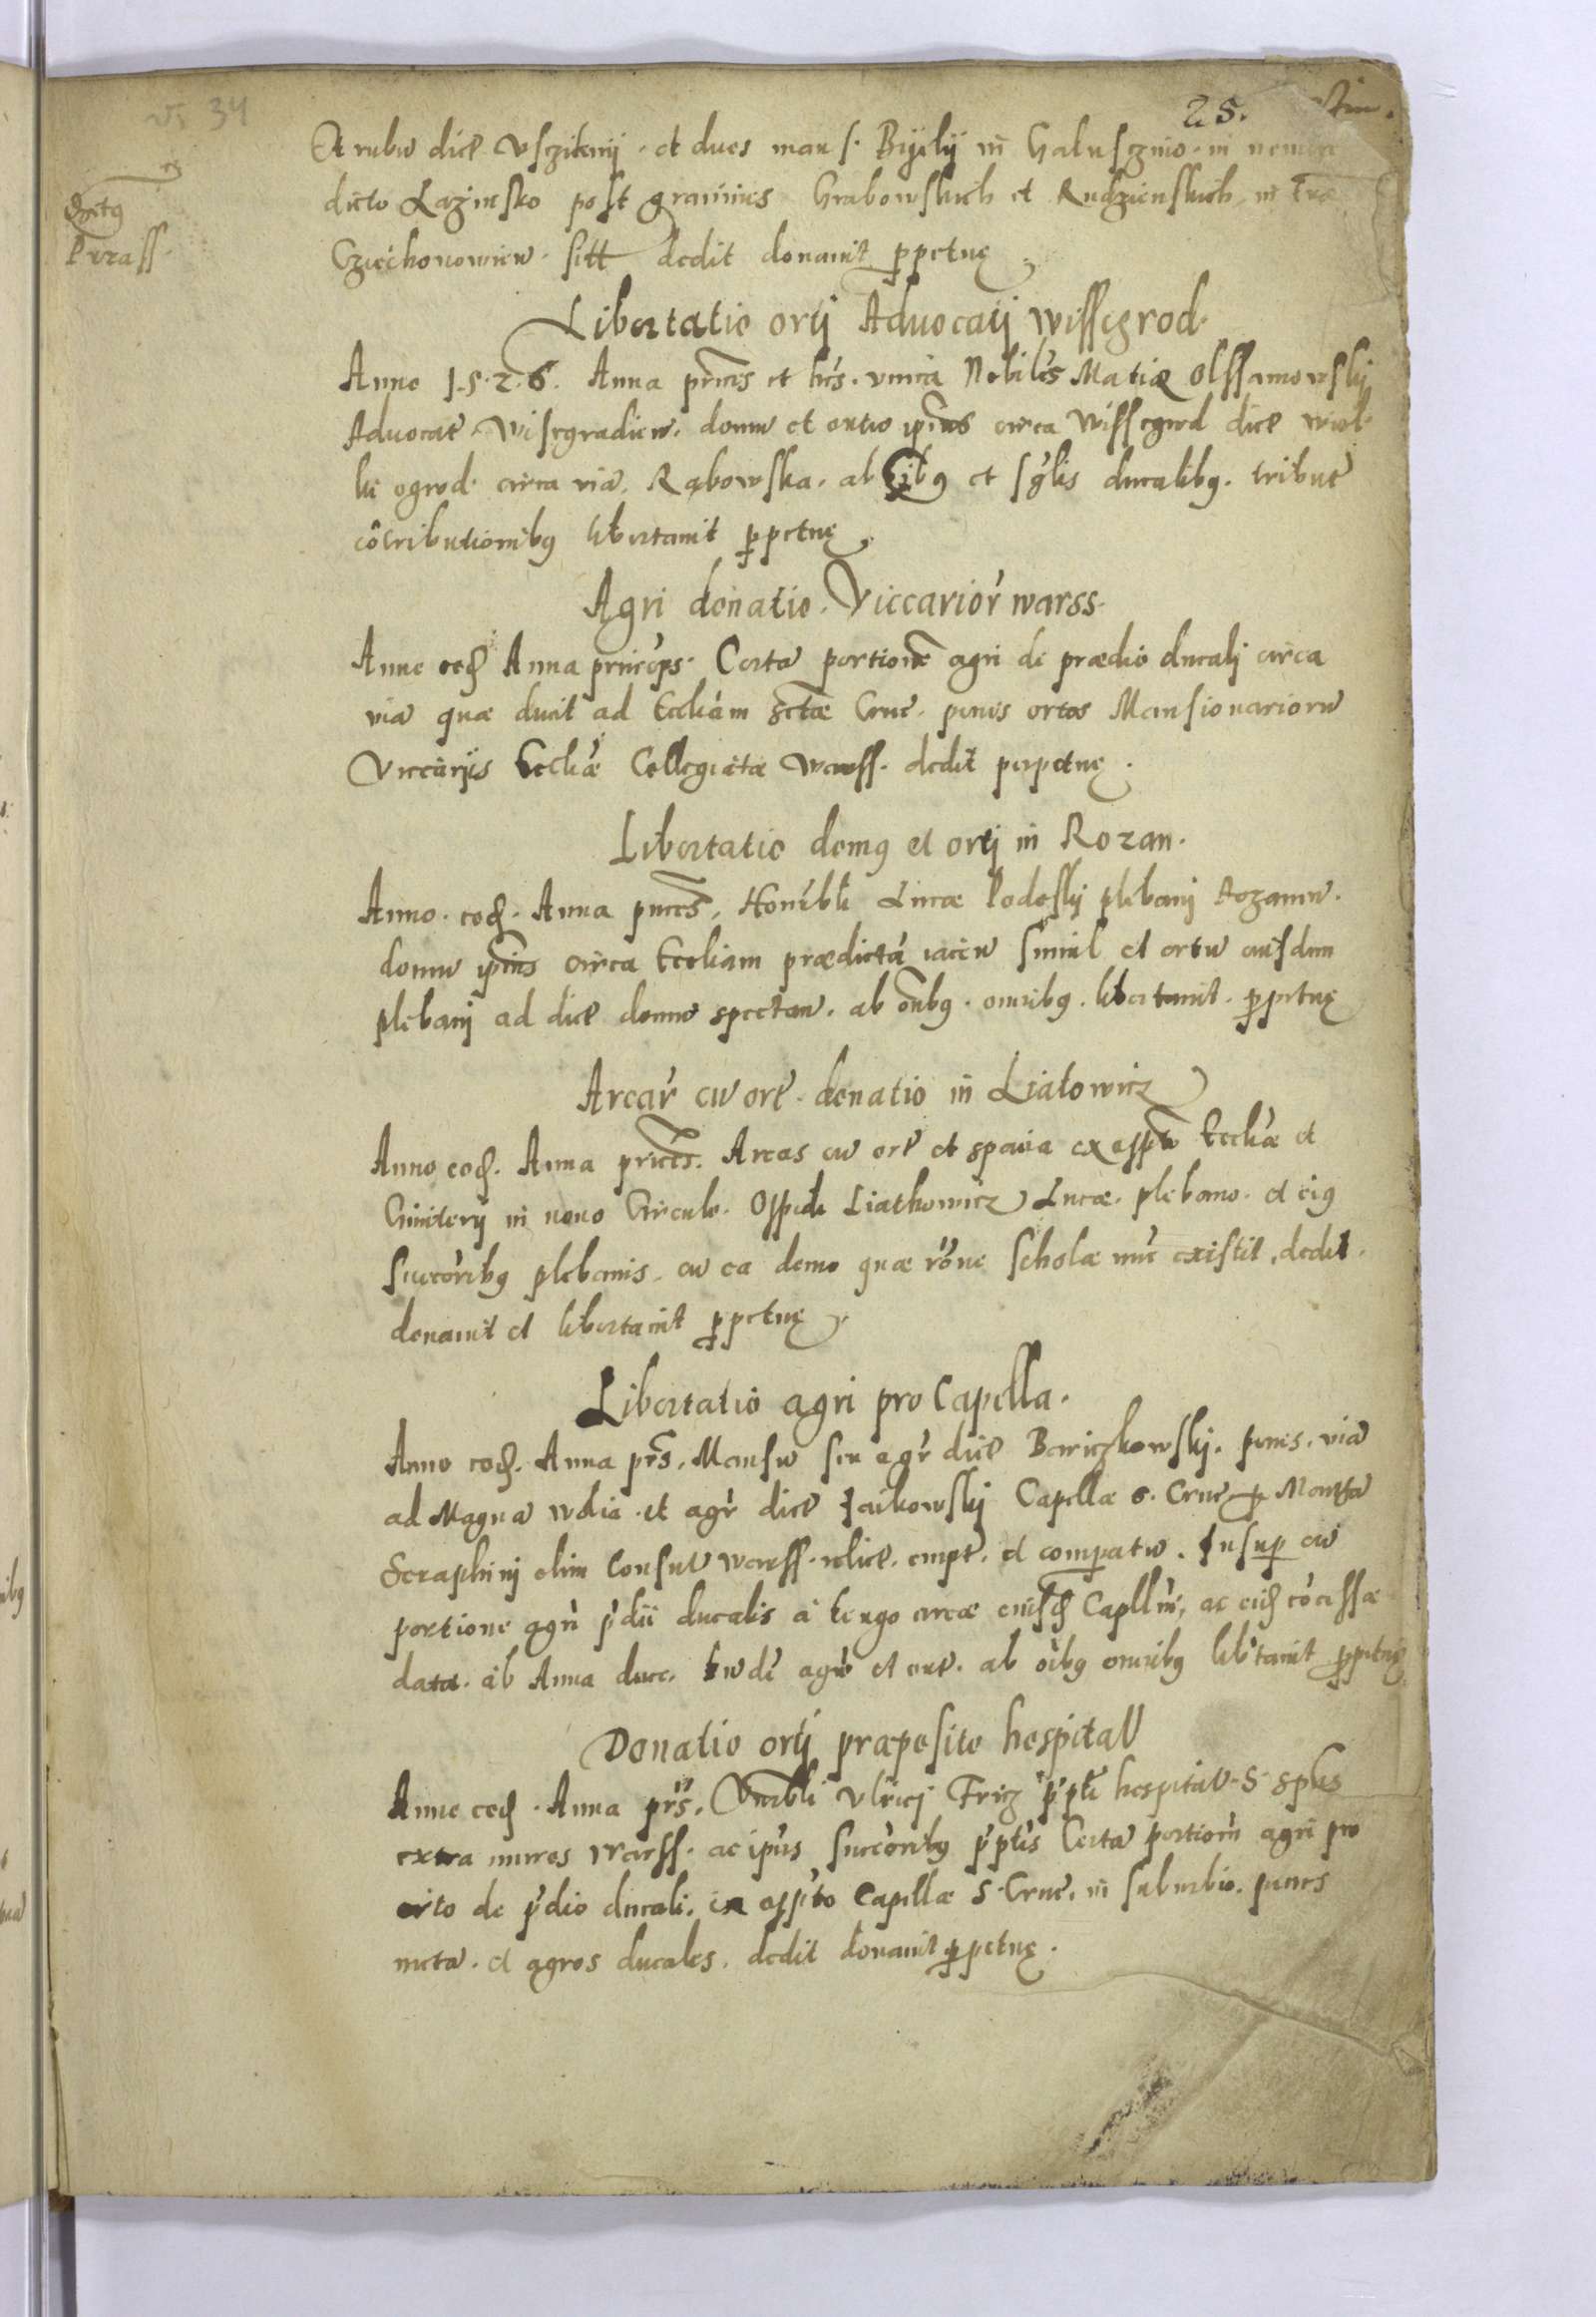 25.
34
Et rubw dict Vszitenij . et dues mans. Bijelij in Galusczino . in nemore
dicto Lazinsko post granities Grabowskich et Rudzienskich in
Cziechonowien . sitt dedit donauit ppetuę
Pvzass.
Libertatio ortj Aduocatj Wissegrod.
Anno 1.5.2.6. Anna princes et hrs . vnica Nobilis Matiæ Olssanowskj
Aduocat . Wisegradien . domu et ortio ipius circa Wissegrod dict wiel
ki ogrod . circa via . Rąbowska . ab oibg et sglis ducalibg . tribut
cotributionibg libertauit ppetuę
Agri donatio . Viccarior warss.
Anno eod Anna princeps . Certa portione agri de prædio ducalj circa
via quæ ducit ad Eccliam sctæ Cruc . penes ortos Mansionariorw
Viccarijs Eccliæ Collegiatæ Warss . dedit perpetuę .
Libertatio domg et ortj in Rozan .
Anno . eod . Anna princes , Honrbli Lucæ Podoskj plebanj Rozanien .
domu ipius circa Eccliam prædicta iacen simul et ortu eiusdem
plebanj ad dict domu spectan . ab omibg . oneribg . libertauit . ppetuę
Arear cu ort . donatio in Liatowicz
Anno eod . Anna princes . Areas cu ort et spatia ex oppto Eccliæ et
Cimiterij in nouo Circulo . Oppidi Liathowicz Lucæ . plebano . et eig
succoribg plebanis . cu ea domo quæ rone scholæ nuc existit , dedit .
donauit et libertauit ppetuę
Libertatio agri pro Capella .
Anno eod . Anna prs , Mansu seu agr dict Bariczkowskj . penes . via
ad Magna wolia . et agr dict Jaikowskj Capellæ S. Cruc p Martha
Seraphinj olim Consul Warss . relict . empt . et compatu . Insup cu
portione agri pdii ducalis a tergo areæ eiusd Capll , ac eid cocessæ
data . ab Anna duce . agr et ort . ab oibg oneribg libtauit ppetuę
Donatio ortj præposito hospital
Anno eod . Anna prs . Vnerbli Vlricj Fricz ppti hospital . S. spus
extra muros Warss . ac ipius succoribg pptis Certa portiom agri pro
orto de pdio ducali . ex oppto Capellæ S. Cruc . in suburbio . penes
meta . et agros ducales . dedit donauit ppetuę .